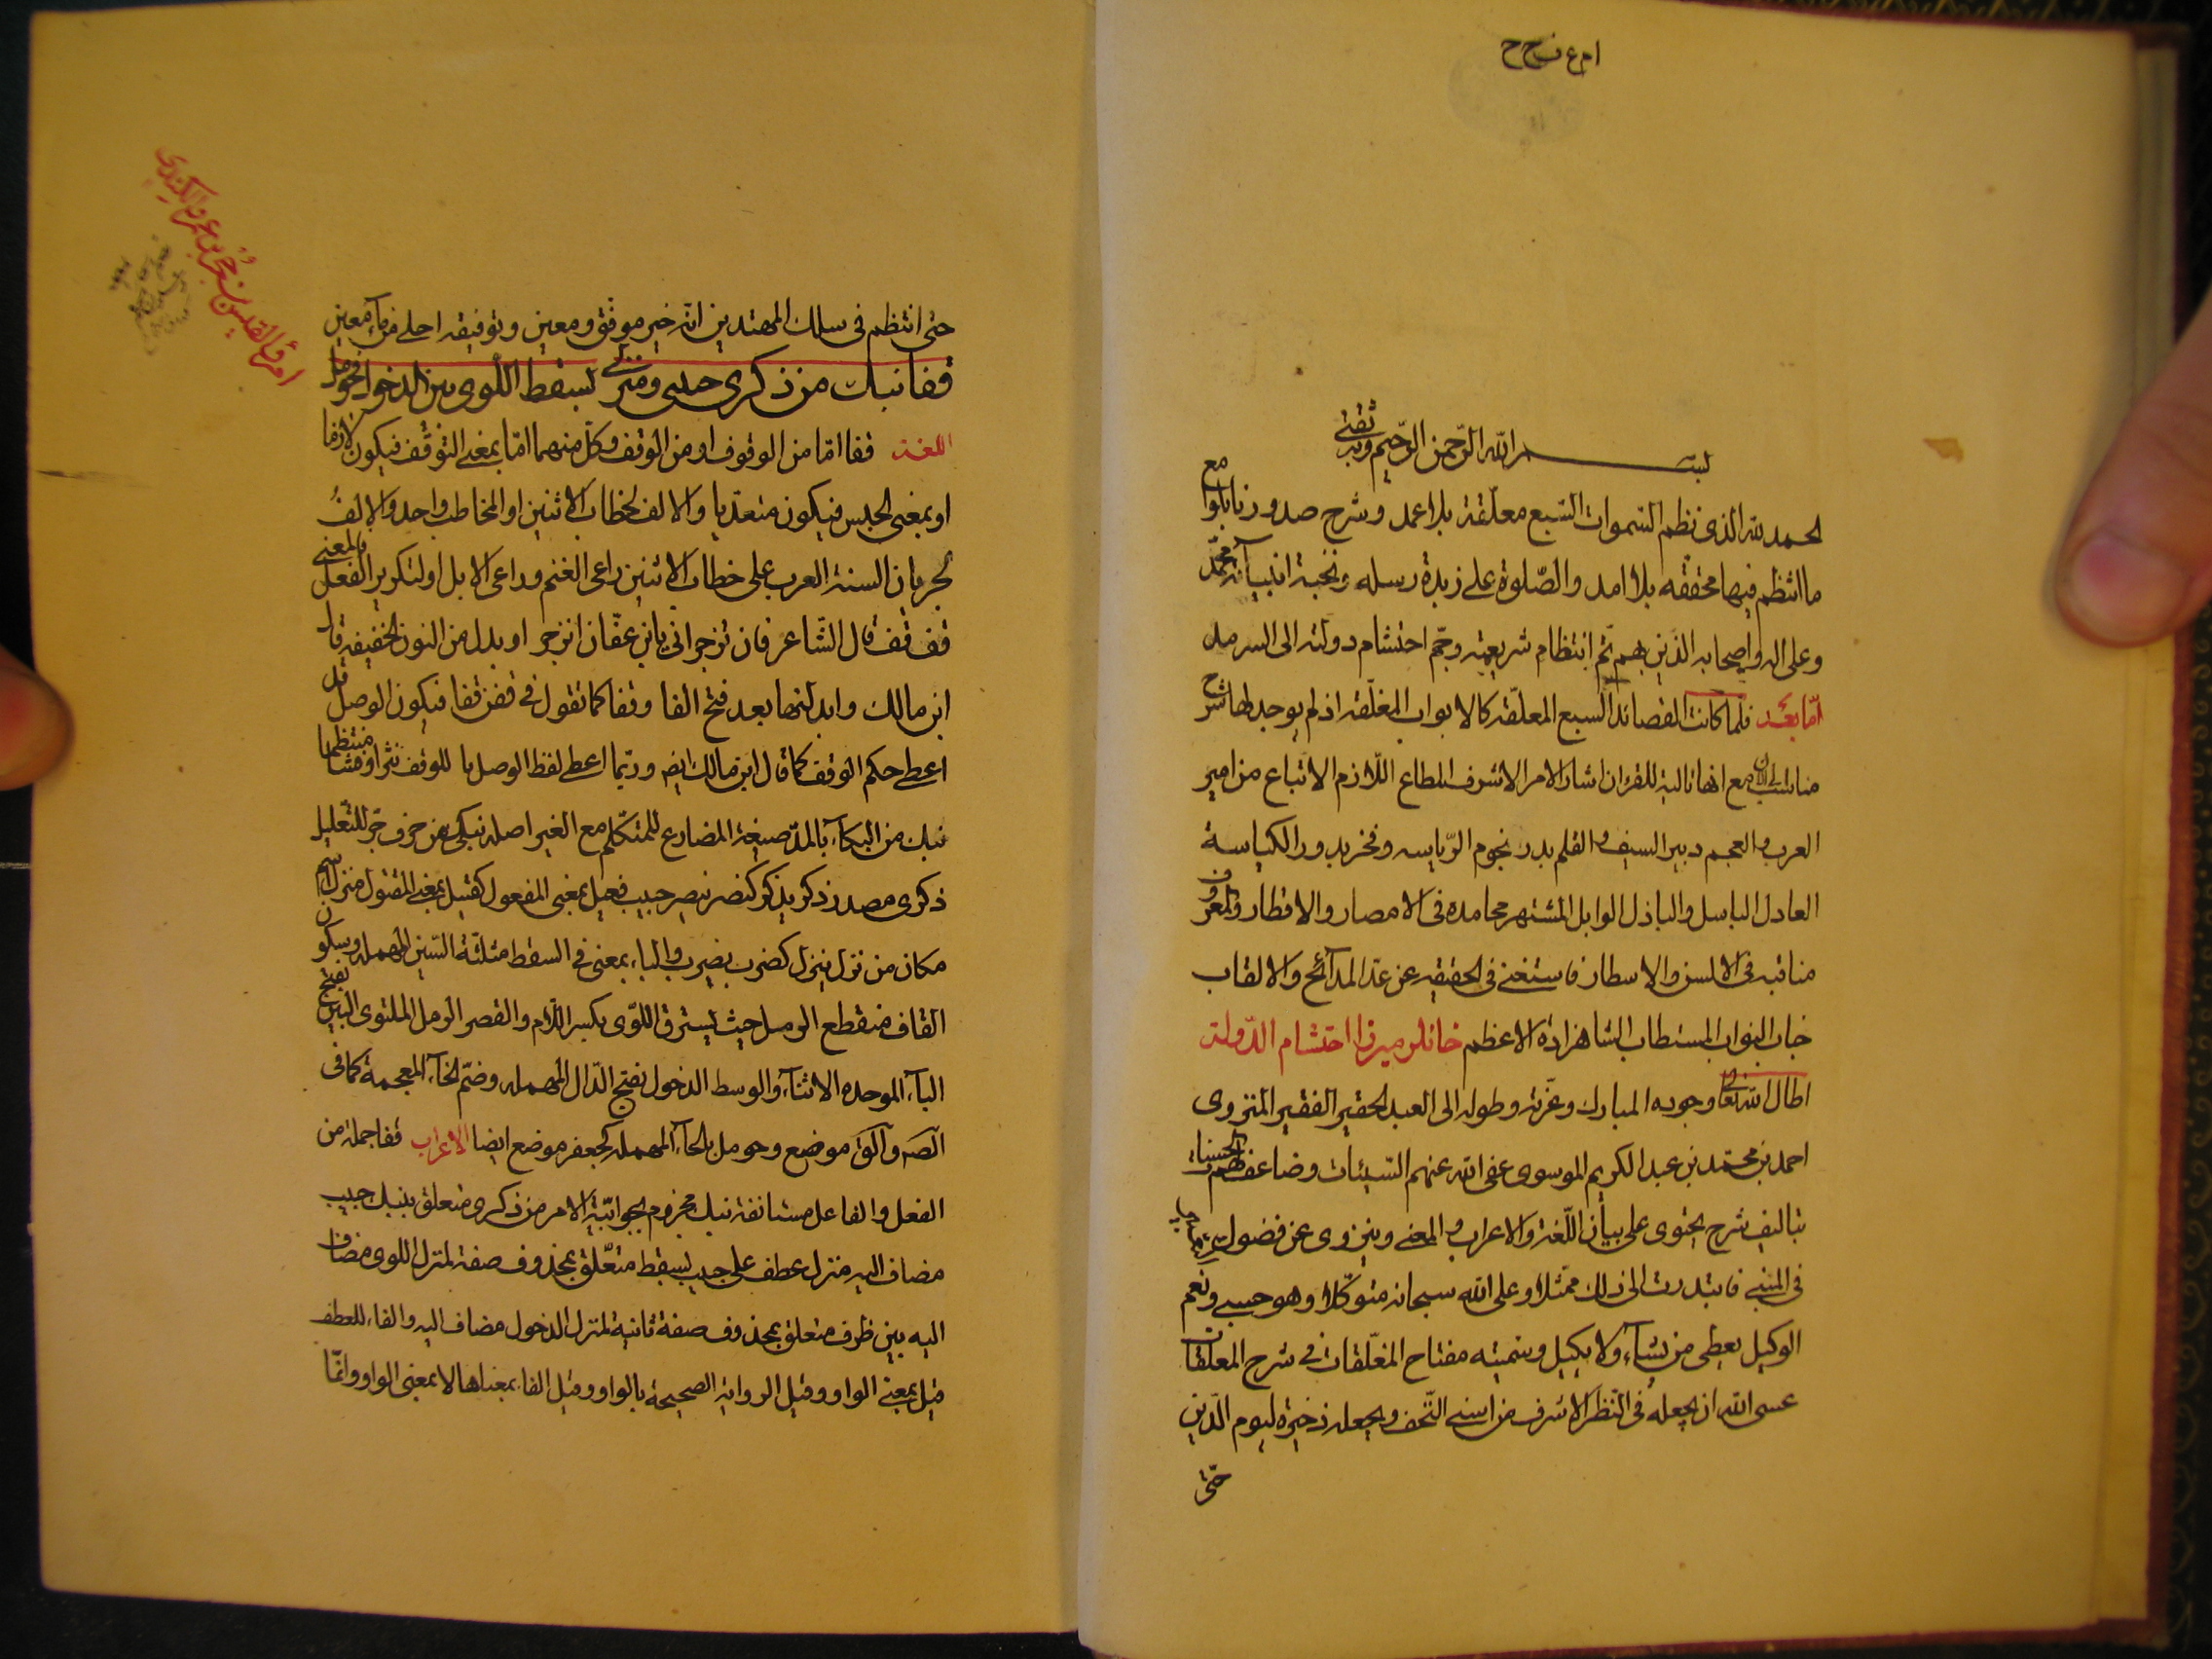 بسم الله الرحمن الرحيم وبه ثقتي
الحمد لله الذي نظم السموات السبع معلقة بلا عمد وشرح صدورنا بانواع
ما انتظم فيها محققه بلا امد والصلوة على زبدة رسله ونخبة انبيائه محمد
وعلى اله واصحابه الذين بهم تم انتظام شريعته وجم احتشام دولته الى السرمد
امّا بعد فلما كانت القصائد السبع المعلقه كالابواب المغلقه اذ لم يوجد لها شرح
مناسب مع انها تالية للقران اشار الامر الاشرف المطاع اللازم الاتباع من امير
العرب والعجم دبير السيف والقلم بدر نجوم الرياسه وفخر بدور الكياسة
العادل الباسل والباذل الوابل المشتهر محامده في الامصار والاقطار والمعروف
مناقبه في الالسن والاسطار فاستغنى في الحقيقه عن عد المدائح والالقاب
جناب النواب المستطاب الشاهزاده الاعظم خانلر ميرزا احتشام الدوله
اطال الله تعالى وجوده المبارك وعزته وطوله الى العبد الحقير الفقير المنزوى
احمد بن محمد بن عبد الكريم الموسوى عفى الله عنهم السيئات وضاعف لهم الحسنات
بتاليف شرح يحتوى على بيان اللغة والاعراب والمعنى وينزوى عن فضول
في المبنى فابتدرت الى ذلك ممتثلا وعلى الله سبحانه متوكلا وهو حسبي ونعم
الوكيل يعطى من يشاء ولا يكيل وسميته مفتاح المغلقات في شرح المعلقات
عسى الله ان يجعله في النظر الاشرف من اسنى التحف ويجعله ذخيرة ليوم الدين
حتى
حتى انتظم في سلك المهتدين انه خير موفق ومعين وتوفيقه احلى من ماء معين
امرؤ القيس بن حجر بن عمرو الكندي
قفا نبك من ذكرى حبيب ومنزل بسقط اللوى بين الدخول فحومل
اللغة قفا امّا من الوقوف او من الوقف وكل منهما امّا بمعنى التوقف فيكون لازما
او بمعنى الحبس فيكون متعديا والالف لخطاب الاثنين او المخاطب واحد والالف
لجريان السنة العرب على خطاب الاثنين راعى الغنم وراعى الابل او لتكرير الفعل والمعنى
قف قف قال الشاعر فان تزجراني يابن عفان انزجر او بدل من النون الخفيفة قال
ابن مالك وابدلنها بعد فتح الفا وقفا كما تقول في قفن قفا فيكون الوصل قد
اعطى حكم الوقف كما قال ابن مالك ايضا وربما اعطى لفظ الوصل ما للوقف نثرا وفشا منتظما
نبك من البكاء بالمد صيغة المضارع للمتكلم مع الغير اصله نبكى من حرف جر للتعليل
ذكرى مصدر ذكر يذكر كنصر ينصر حبيب فعيل بمعنى المفعول كقتيل بمعنى المقتول منزل اسم
مكان من نزل ينزل كضرب يضرب والباء بمعنى في السقط مثلثة السين المهمله وسكون
القاف منقطع الرمل حيث يسترق اللوى بكسر اللام والقصر الرمل الملتوى البين بفتح
الباء الموحده الاثناء والوسط الدخول بفتح الدال المهمله وضم الخاء المعجمة كما في
موضع وحومل بالحاء المهمله كجعفر موضع ايضا الاعراب قفا جملة من
الفعل والفاعل مستانفة نبك مجزوم بجوابية الامر من ذكرى متعلق بنبك حبيب
مضاف اليه منزل عطف على حبيب بسقط متعلق بمحذوف صفة لمنزل اللوى مضاف
اليه بين ظرف متعلق بمحذوف صفة ثانية لمنزل الدخول مضاف اليه والفاء للعطف
قيل بمعنى الواو وقيل الرواية الصحيحة بالواو وقيل الفاء بمعناها لا بمعنى الواو وانما